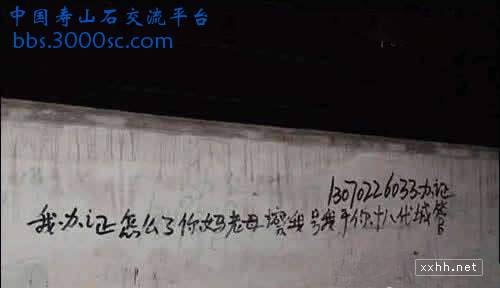 中国寿山石交流平台
bbs.3000sc.com
13070226033办证
我办证怎么了你妈老母擦我号我干你十八代城管
xxhh.net